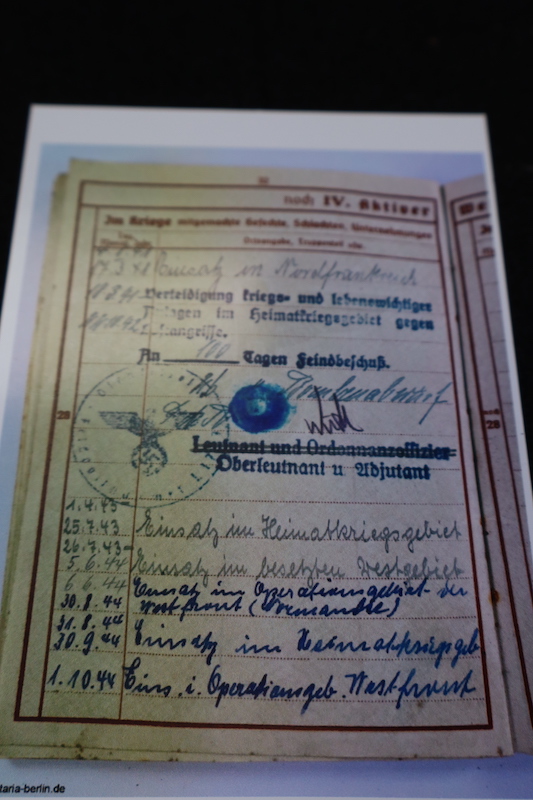 noch IV. Aktiver
Im Kriege mitgemachte Gefechte, Schlachten, Unternehmungen
Tag, Monat, Jahr
Ortsangabe, Truppenteil etc.
Einsatz in Nordfrankreich
Verteidigung kriegs- und lebenswichtiger
Anlagen im Heimatkriegsgebiet gegen
Luftangriffe.
An 100 Tagen Feindbeschuß.
Bombenabwurf
28
28
Leutnant und Ordonnanzoffizier
Oberleutnant u Adjutant
1.4.43-
25.7.43 Einsatz im Heimatkriegsgebiet
26.7.43=
5.6.44 Einsatz im besetzten Westgebiet
6.6.44 Einsatz im Operationsgebiet der
30.8.44 Westfront (Normandie)
31.8.44
30.9.44 Einsatz im Heimatkriegsgeb
1.10.44 Eins. i. Operationsgeb. Westfront
taria-berlin.de